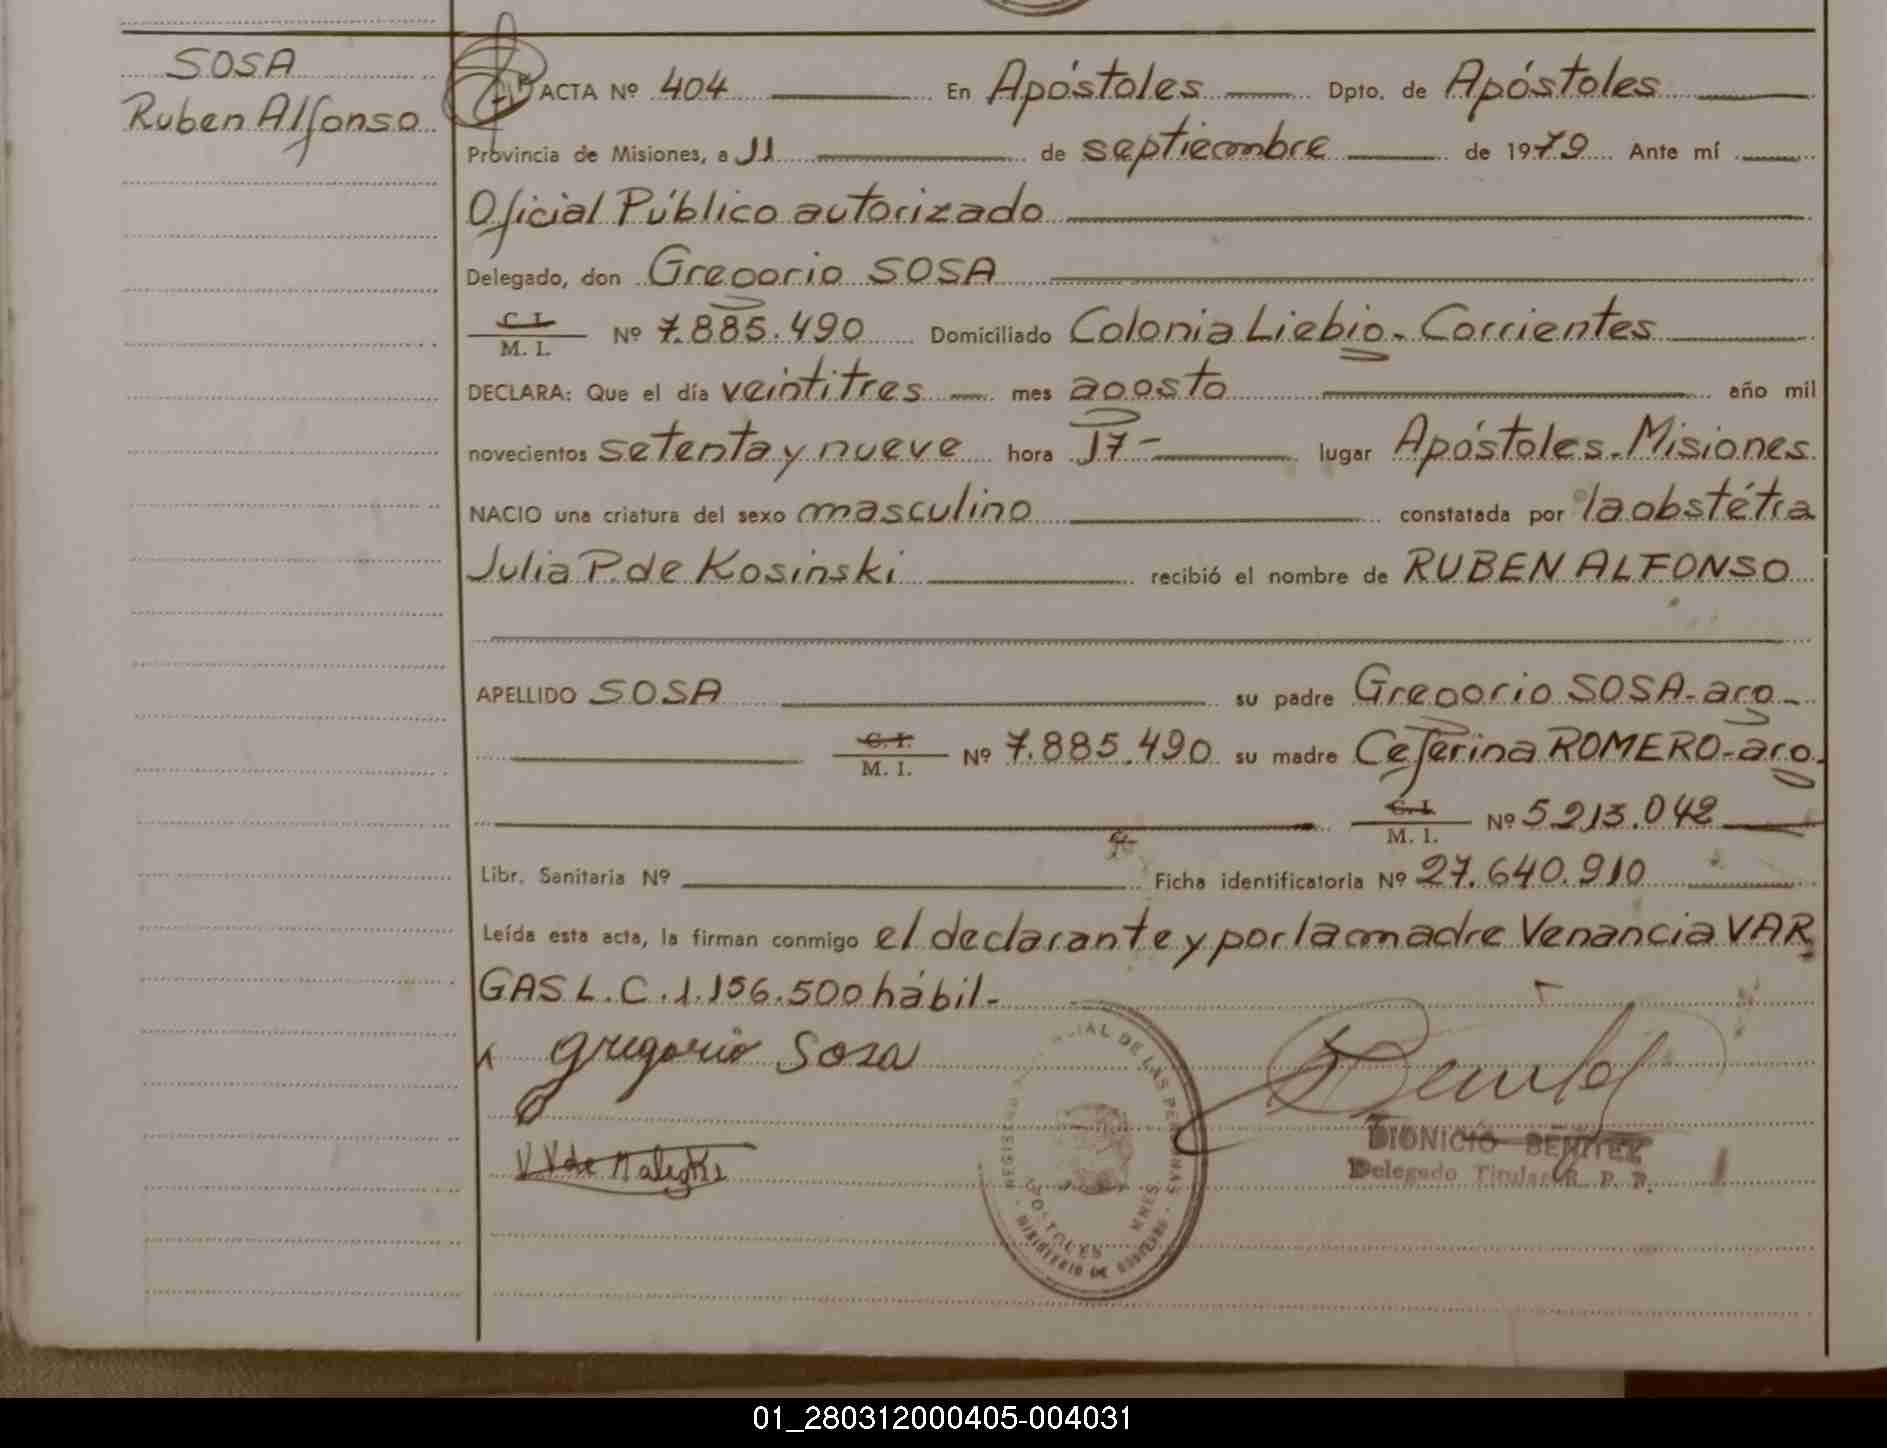 SOSA
Ruben Alfonso
ACTA Nº 404 En Apóstoles Dpto. de Apóstoles
Provincia de Misiones, a 11 de septiembre de 1979 Ante mí
Oficial Público autorizado
Delegado, don Gregorio SOSA
C. I. / M. I. Nº 7.885.490 Domiciliado Colonia Liebig - Corrientes
DECLARA: Que el día veintitres mes agosto año mil
novecientos setenta y nueve hora 17- lugar Apóstoles - Misiones
NACIO una criatura del sexo masculino constatada por la obstétra
Julia P. de Kosinski recibió el nombre de RUBEN ALFONSO
APELLIDO SOSA su padre Gregorio SOSA - arg -
C. I. / M. I. Nº 7.885.490 su madre Ceferina ROMERO - arg.
C. I. / M. I. Nº 5.213.042
Libr. Sanitaria Nº Ficha identificatoria Nº 27.640.910
Leída esta acta, la firman conmigo el declarante y por la madre Venancia VAR
GAS L.C. 1.156.500 hábil -
gregorio Sosa
V V de
DIONICIO BENITEZ
Delegado Titular R. P. P.
REGISTRO IAL DE LAS PERSONAS
MINISTERIO DE GOBIERNO
01_280312000405-004031